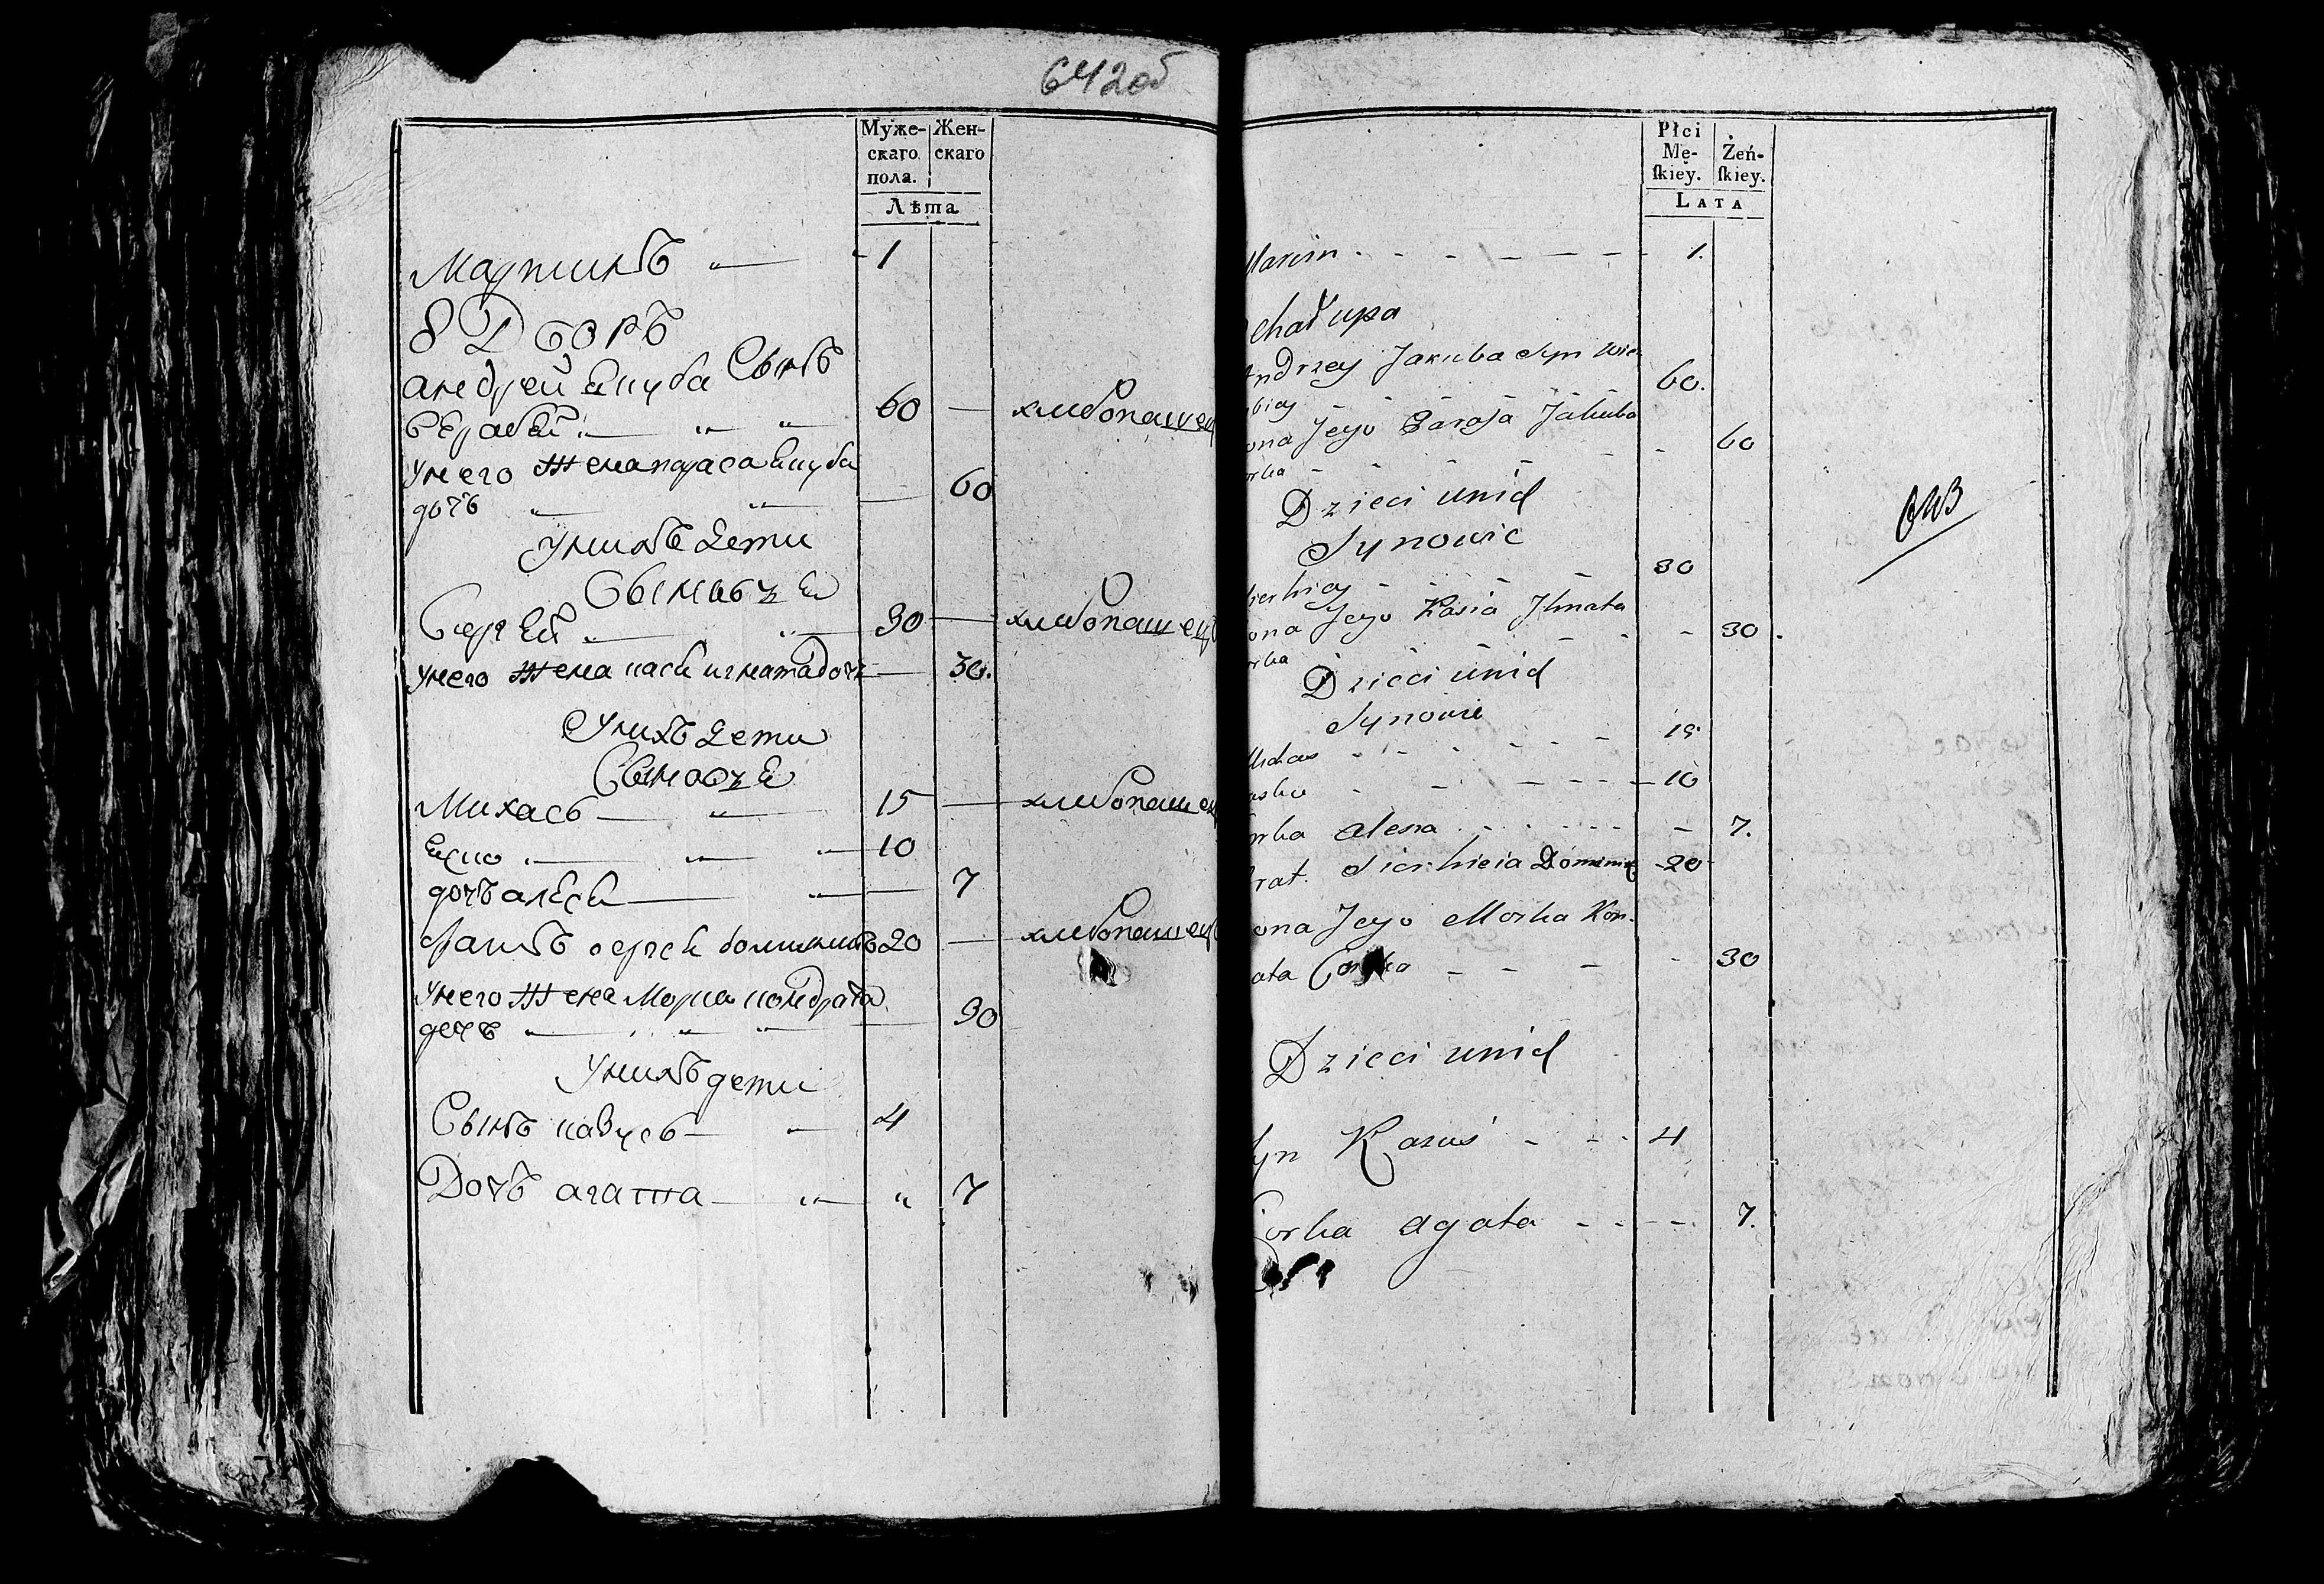 642об
Муже-
скаго
пола.
Жен-
скаго
Лѣта
Мартинъ 1
8 Дворъ
андрей Якуба Сынъ
Верабей 60 — хлибопашец
унего Жена параса Якуба
дочъ — 60
унихъ дети
Сыновъя
Сергей 30 — хлибопашецъ
унего Жена кася игната дочъ — 30.
Унихъ дети
Сыновъя
Михась 15 — хлибопашец
10
дочъ алеся — 7
20 — хлибопашец
унего Жена Морка кондрата
дочъ — 30
Унихъ дети
Сынъ казусь 4
Дочъ агата „ 7
Płci
Mę-
ſkiey.
Żeń-
ſkiey.
LATA
Marcin 1.
chałupa
Andrzey Jakuba Syn Wie-
biey 60.
ona Jego Parasa Jakuba
orka - 60
Dzieci unich
Synowie
ierhiey 30
ona Jego Kasia Ihnata
orka - 30
Dzieci unich
Synowie
Michas 15
asko 10
orka Alesia - 7.
rat Sierhieia Dominik 20
ona Jego Morka Kon-
ata Corka - 30
Dzieci unich
yn Kazuś 4
Corka Agata 7.